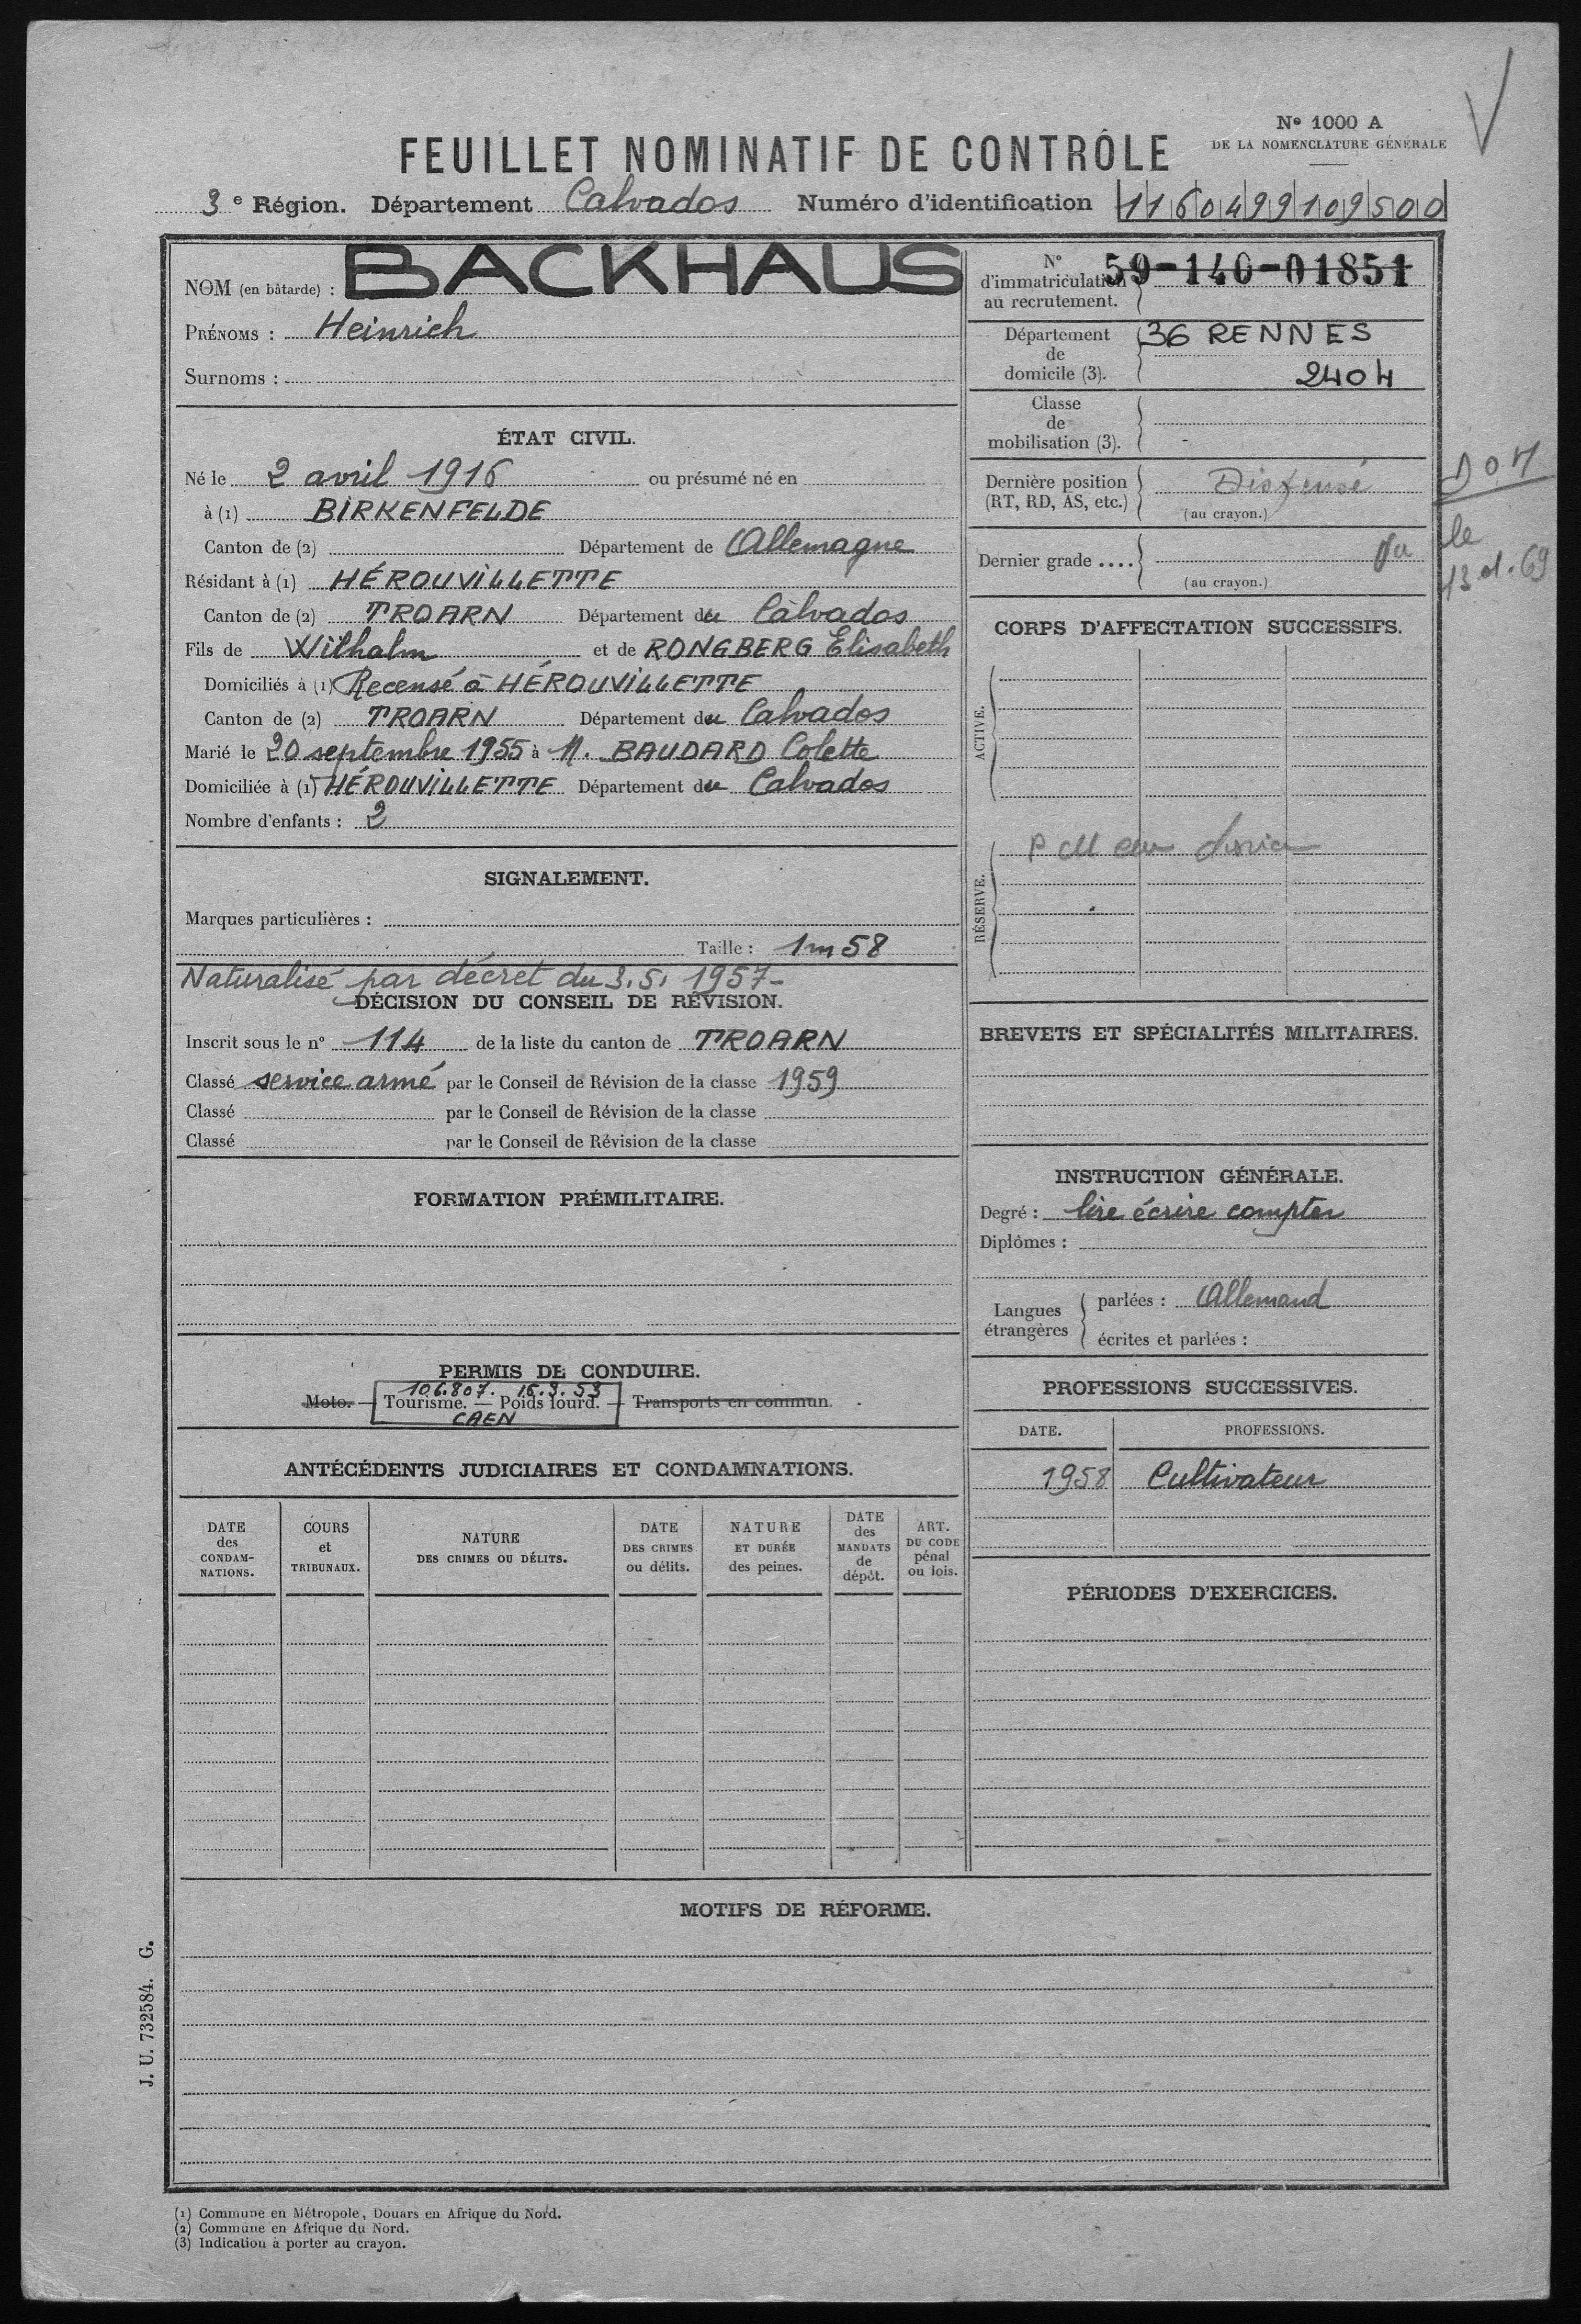 N° 1000 A
DE LA NOMENCLATURE GÉNÉRALE
FEUILLET NOMINATIF DE CONTRÔLE
3e Région. Département Calvados Numéro d'identification 1160499109500
NOM (en bâtarde) : BACKHAUS
PRÉNOMS : Heinrich
Surnoms :
ÉTAT CIVIL.
Né le 2 avril 1916 ou présumé né en
à (1) BIRKENFELDE
Canton de (2) Département de Allemagne
Résidant à (1) HÉROUVILLETTE
Canton de (2) TROARN Département du Calvados
Fils de Wilhalm et de RONGBERG Elisabeth
Domiciliés à (1) Recensé à HÉROUVILLETTE
Canton de (2) TROARN Département du Calvados
Marié le 20 septembre 1955 à M. BAUDARD Colette
Domiciliée à (1) HÉROUVILLETTE Département du Calvados
Nombre d'enfants : 2
SIGNALEMENT.
Marques particulières :
Taille : 1m58
Naturalisé par décret du 3.5.1957-
DÉCISION DU CONSEIL DE RÉVISION.
Inscrit sous le n° 114 de la liste du canton de TROARN
Classé service armé par le Conseil de Révision de la classe 1959
Classé par le Conseil de Révision de la classe
Classé par le Conseil de Révision de la classe
FORMATION PRÉMILITAIRE.
PERMIS DE CONDUIRE.
106.807. 16.3.53
Moto. — Tourisme. — Poids lourd. — Transports en commun.
CAEN
ANTÉCÉDENTS JUDICIAIRES ET CONDAMNATIONS.
DATE des CONDAMNATIONS.
COURS et TRIBUNAUX.
NATURE DES CRIMES OU DÉLITS.
DATE DES CRIMES ou délits.
NATURE ET DURÉE des peines.
DATE des MANDATS de dépôt.
ART. DU CODE pénal ou lois.
N° d'immatriculation au recrutement. 59-140-01851
Département de domicile (3). 36 RENNES
2404
Classe de mobilisation (3). -
Dernière position (RT, RD, AS, etc.) Dispensé
(au crayon.)
Dernier grade ....
(au crayon.)
DOM
le
CORPS D'AFFECTATION SUCCESSIFS.
ACTIVE.
RÉSERVE.
BREVETS ET SPÉCIALITÉS MILITAIRES.
INSTRUCTION GÉNÉRALE.
Degré : lire écrire compter
Diplômes :
Langues étrangères
parlées : Allemand
écrites et parlées :
PROFESSIONS SUCCESSIVES.
DATE. PROFESSIONS.
1958 Cultivateur
PÉRIODES D'EXERCICES.
MOTIFS DE RÉFORME.
J. U. 732584. G.
(1) Commune en Métropole, Douars en Afrique du Nord.
(2) Commune en Afrique du Nord.
(3) Indication à porter au crayon.